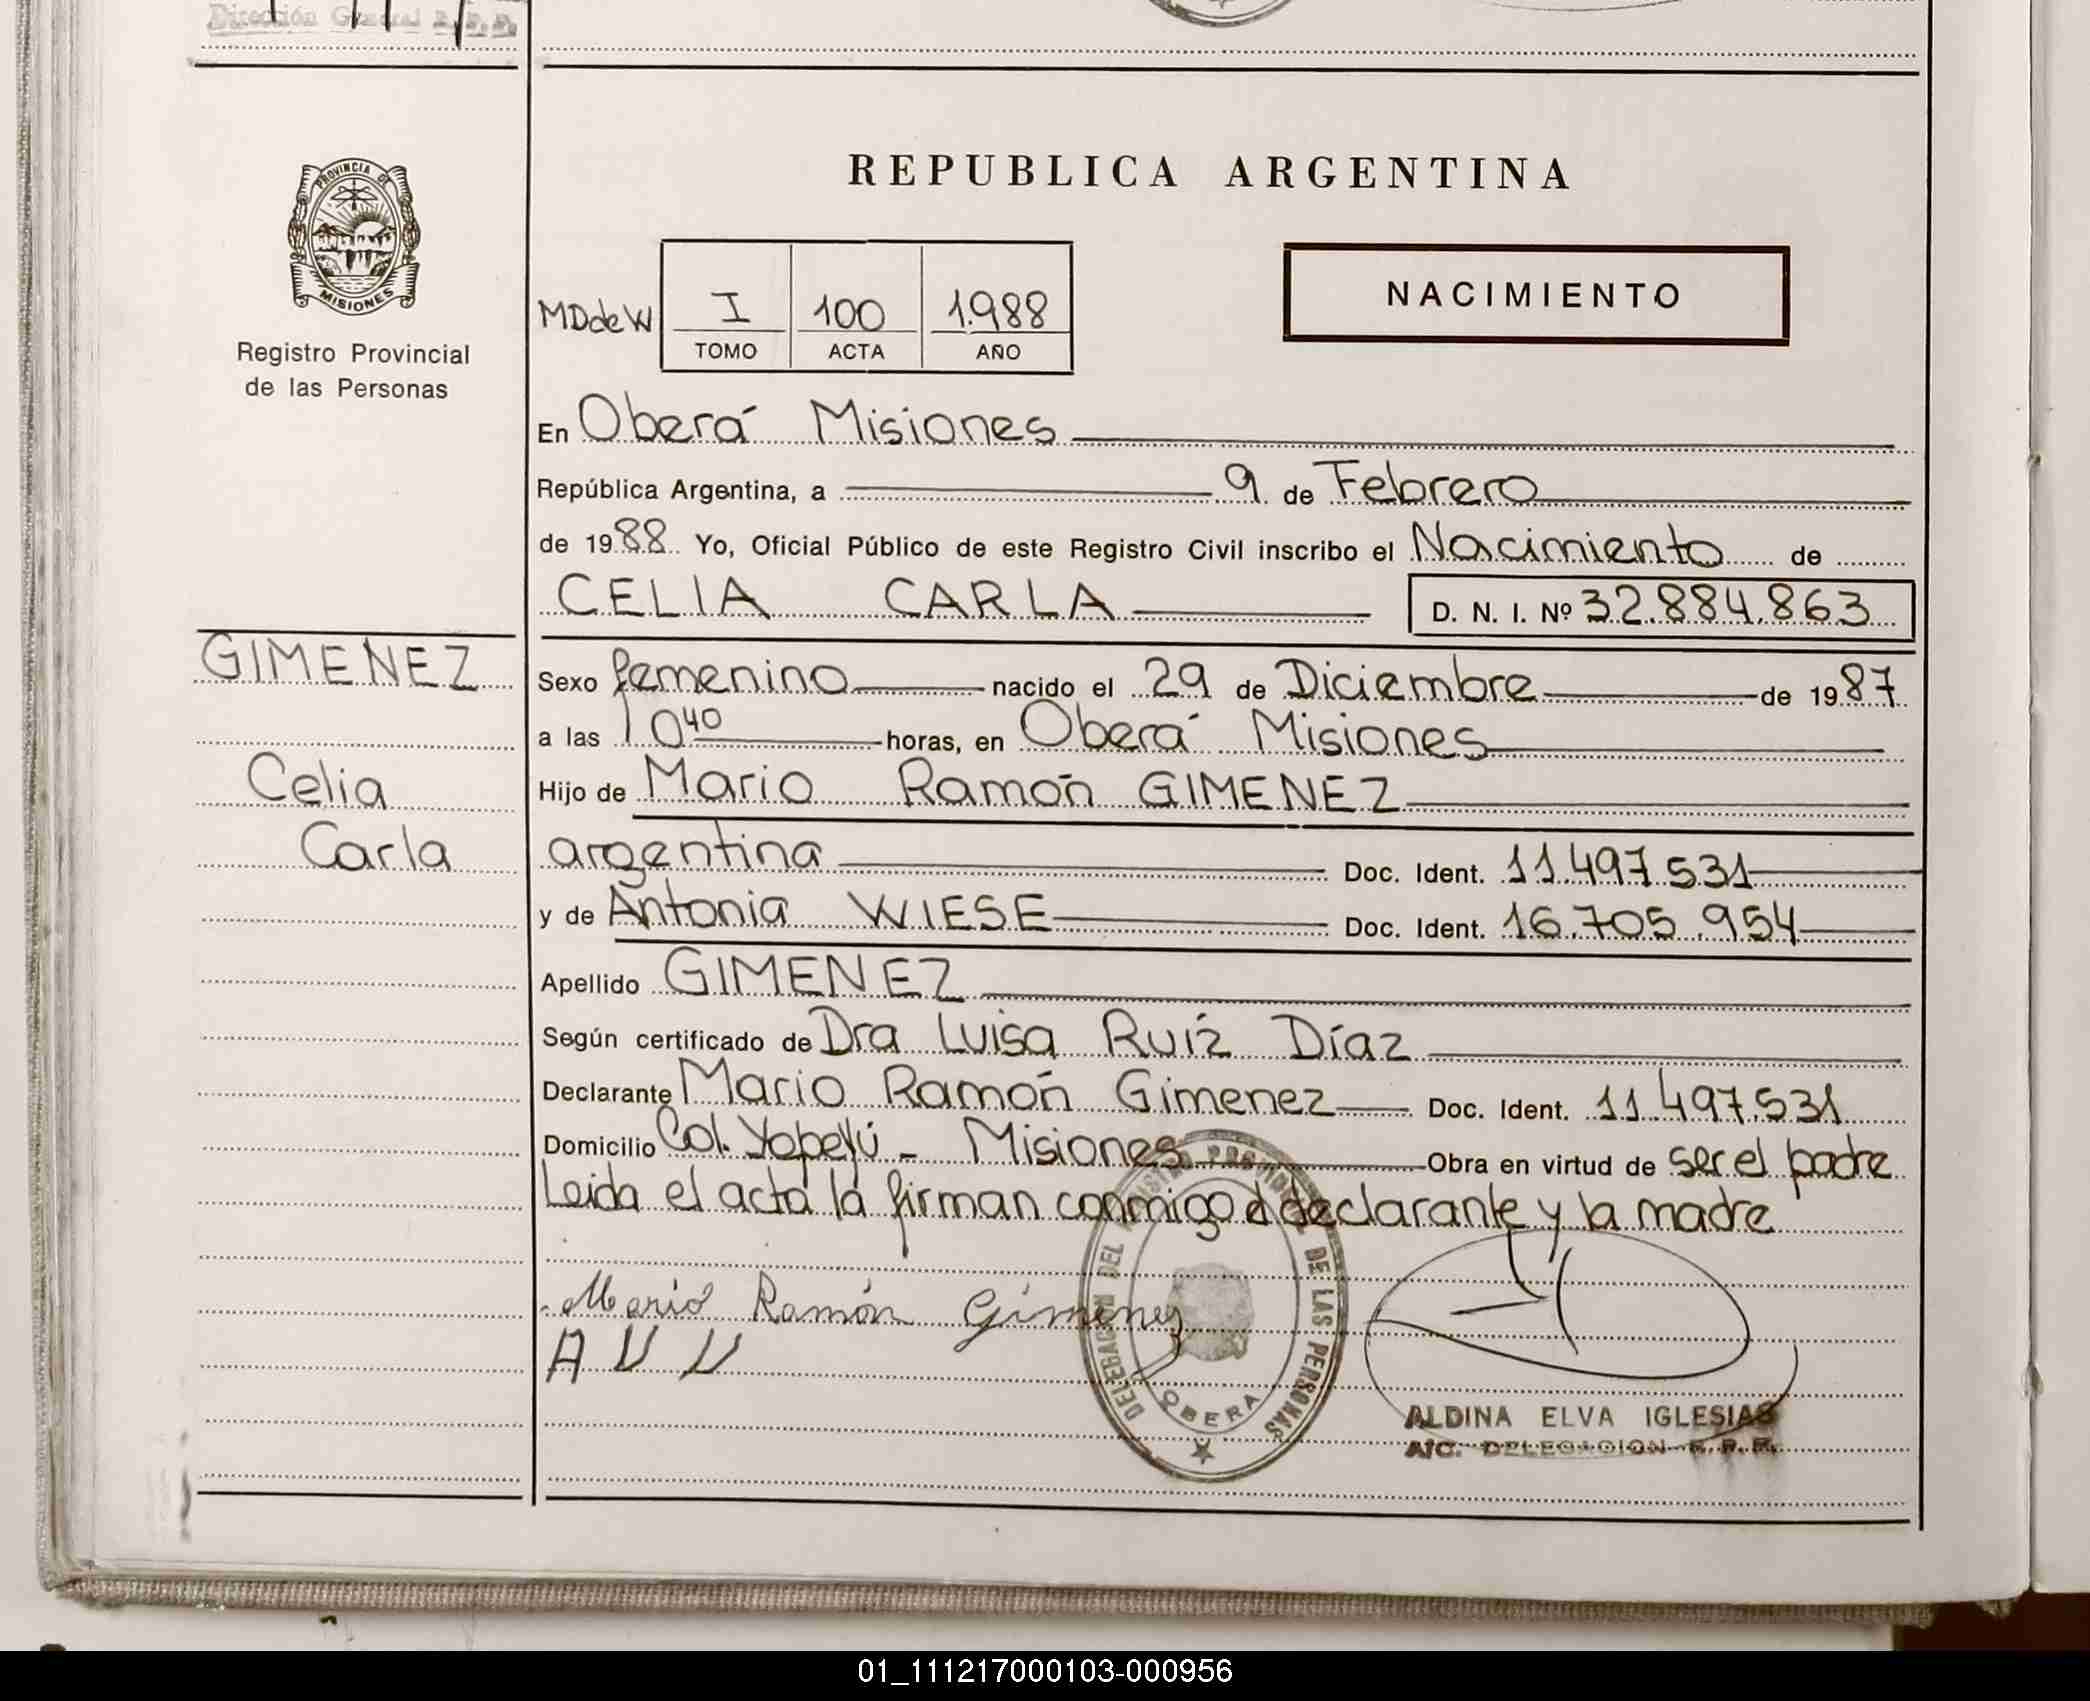 Dirección General R.P.P.
PROVINCIA DE
MISIONES
Registro Provincial
de las Personas
GIMENEZ
Celia
Carla
REPUBLICA ARGENTINA
MDdeW I 100 1.988
TOMO ACTA AÑO
NACIMIENTO
En Oberá Misiones
República Argentina, a 9 de Febrero
de 1988 Yo, Oficial Público de este Registro Civil inscribo el Nacimiento de
CELIA CARLA D. N. I. Nº 32.884.863
Sexo femenino nacido el 29 de Diciembre de 1987
a las 10⁴⁰ horas, en Oberá Misiones
Hijo de Mario Ramón GIMENEZ
argentina Doc. Ident. 11.497.531
y de Antonia WIESE Doc. Ident. 16.705.954
Apellido GIMENEZ
Según certificado de Dra Luisa Ruíz Díaz
Declarante Mario Ramón Gimenez Doc. Ident. 11.497.531
Domicilio Col. Yapeyú - Misiones Obra en virtud de ser el padre
Leida el acta la firman conmigo el declarante y la madre
Mario Ramón Gimenez
DELEGACION DEL REGISTRO PROVINCIAL DE LAS PERSONAS
OBERA
ALDINA ELVA IGLESIAS
A/C. DELEGACION R.P.P.
01_111217000103-000956